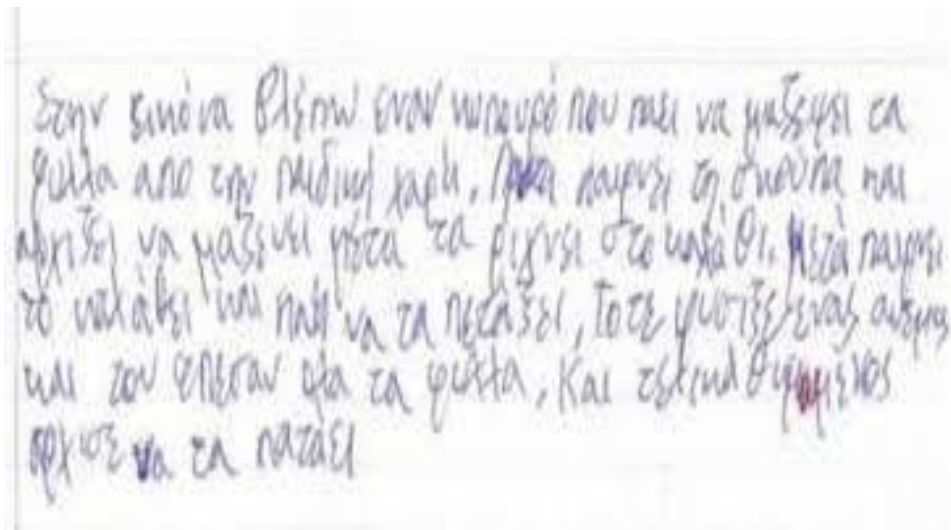 Στην εικόνα βλέπω εναν κηπουρό που παει να μαζεψει τα
φυλλα απο την παιδική χαρά. παιρνει τη σκούπα και
αρχιζει να μαζευει μετα τα ριχνει στο καλάθι. Μετά παιρνει
το καλάθι και παει να τα πετάξει, Τοτε φυσιξε ενας ανεμος
και του επεσαν ολα τα φυλλα, Και τελικά θυμωμένος
αρχισε να τα παταει